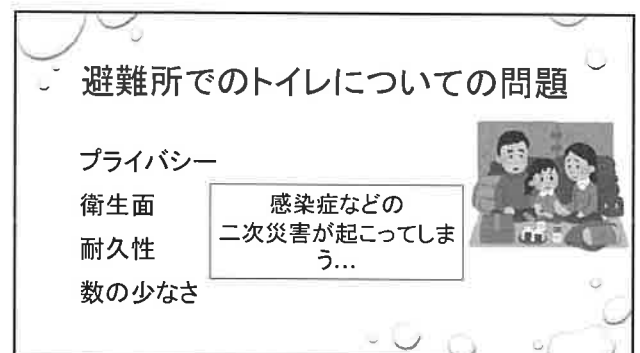 避難所でのトイレについての問題
プライバシー
衛生面
耐久性
数の少なさ
感染症などの
二次災害が起こってしま
う…